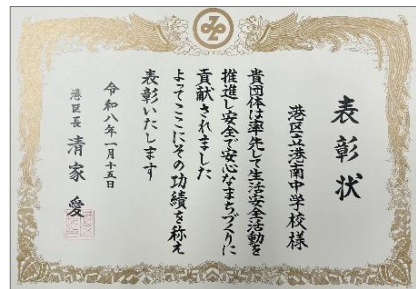 表彰状
港区立港南中学校様
貴団体は率先して生活安全活動を
推進し安全で安心なまちづくりに
貢献されました
よってここにその功績を称え
表彰いたします
令和八年一月十五日
港区長 清家 愛